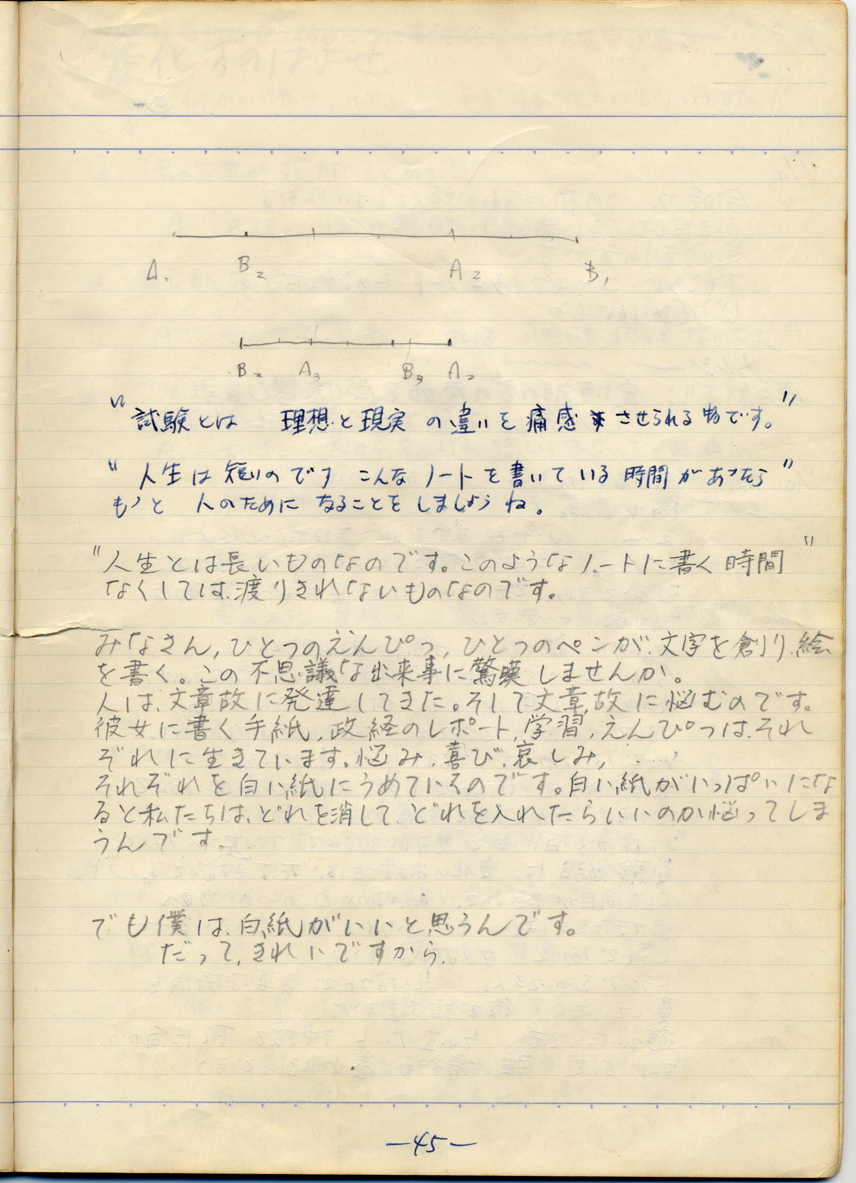 A₁ B₂ A₂ B₁
B₂ A₃ B₃ A₂
"試験とは 理想と現実の違いを痛感させられる物です。"
"人生は短いのです こんなノートを書いている時間があったら"
もっと 人のために なることを しましょうね。
"人生とは長いものなのです。このようなノートに書く時間"
なくしては、渡りきれないものなのです。
みなさん,ひとつのえんぴつ,ひとつのペンが,文字を創り,絵
を書く。この不思議な出来事に驚嘆しませんか。
人は,文章故に発達してきた。そして文章,故に悩むのです。
彼女に書く手紙,政経のレポート,学習,えんぴつは,それ
ぞれに生きています。悩み,喜び,哀しみ,....
それぞれを白い紙にうめているのです。白い紙がいっぱいにな
ると私たちは、どれを消して、どれを入れたらいいのか悩ってしま
うんです。
でも僕は、白紙がいいと思うんです。
だって,きれいですから,
—45—